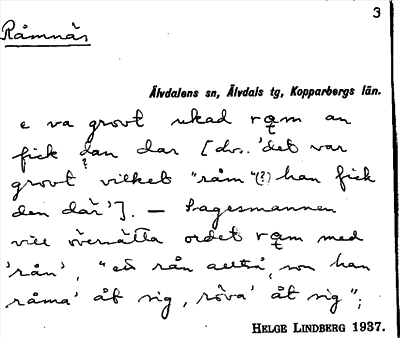 3
Råmnäs
Älvdalens sn, Älvdals tg, Kopparbergs län.
e va grovt ukad rąm an
fick dan dar [dvs. 'det var
grovt vilket "råm"(?) han fick
den där']. — Sagesmannen
vill översätta ordet rąm med
'rån', "ett rån alltså, som han
råma' åt sig, röva' åt sig";
HELGE LINDBERG 1937.